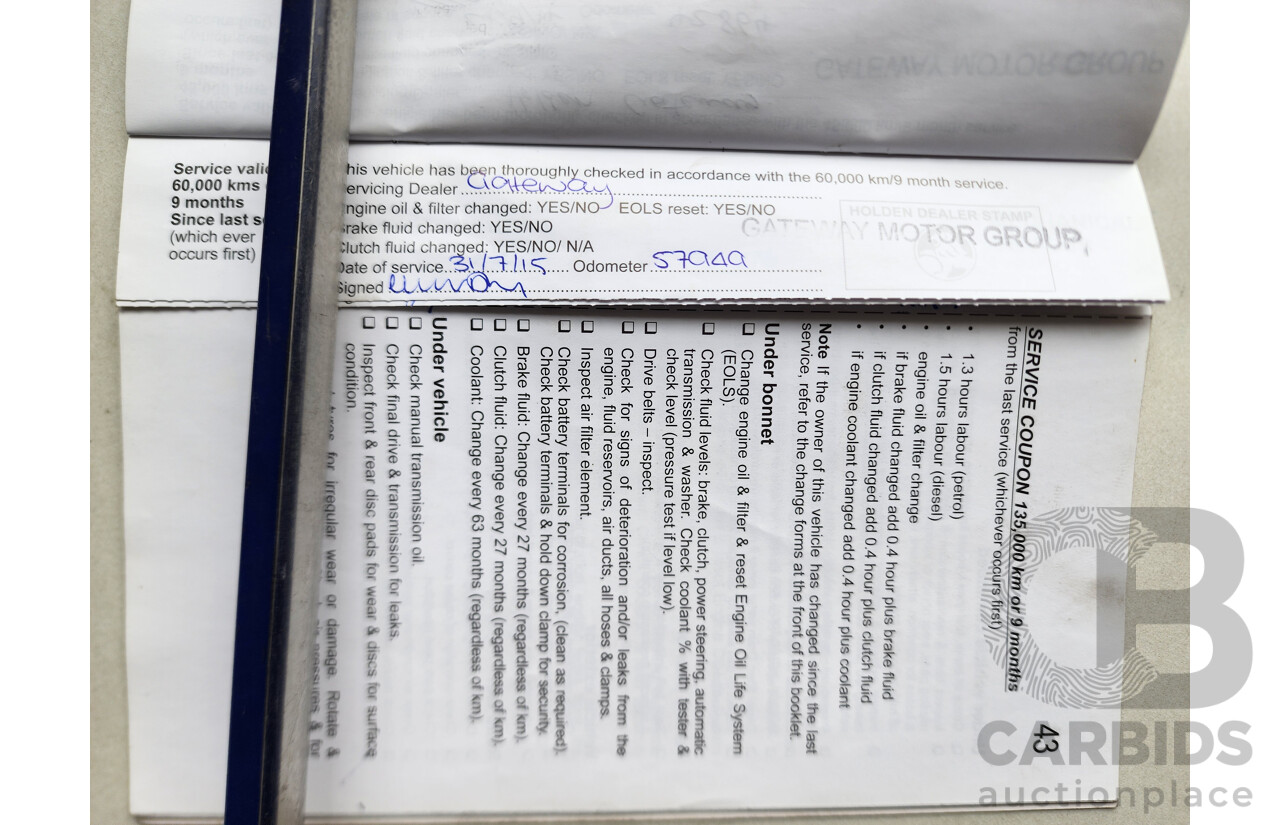 GATEWAY MOTOR GROUP
Service valid
60,000 kms
9 months
Since last
(which ever
occurs first)
his vehicle has been thoroughly checked in accordance with the 60,000 km/9 month service.
ervicing Dealer Gateway
ngine oil & filter changed: YES/NO EOLS reset: YES/NO
rake fluid changed: YES/NO
lutch fluid changed: YES/NO/ N/A
Date of service 31/7/15 Odometer 57949
Signed
HOLDEN DEALER STAMP
GATEWAY MOTOR GROUP
SERVICE COUPON 135,000 km or 9 months
from the last service (whichever occurs first)
43
• 1.3 hours labour (petrol)
• 1.5 hours labour (diesel)
• engine oil & filter change
• if brake fluid changed add 0.4 hour plus brake fluid
• if clutch fluid changed add 0.4 hour plus clutch fluid
• if engine coolant changed add 0.4 hour plus coolant
Note If the owner of this vehicle has changed since the last
service, refer to the change forms at the front of this booklet.
Under bonnet
❑ Change engine oil & filter & reset Engine Oil Life System
(EOLS).
❑ Check fluid levels: brake, clutch, power steering, automatic
transmission & washer. Check coolant % with tester &
check level (pressure test if level low).
❑ Drive belts – inspect.
❑ Check for signs of deterioration and/or leaks from the
engine, fluid reservoirs, air ducts, all hoses & clamps.
❑ Inspect air filter element.
❑ Check battery terminals for corrosion, (clean as required).
Check battery terminals & hold down clamp for security.
❑ Brake fluid: Change every 27 months (regardless of km).
❑ Clutch fluid: Change every 27 months (regardless of km).
❑ Coolant: Change every 63 months (regardless of km).
Under vehicle
❑ Check manual transmission oil.
❑ Check final drive & transmission for leaks.
❑ Inspect front & rear disc pads for wear & discs for surface
condition.
for irregular wear or damage. Rotate &
pressures & for
CB
CARBIDS
auctionplace